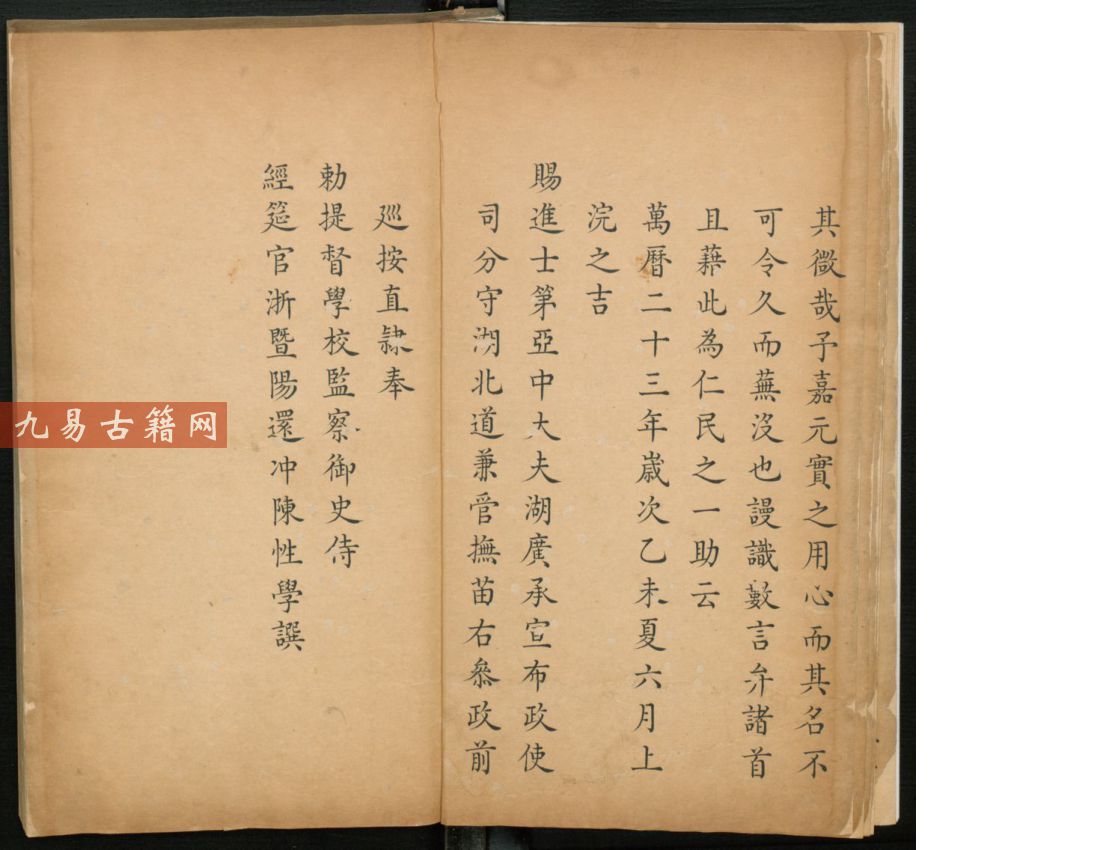 其微哉予嘉元實之用心而其名不
可令久而蕪沒也謾識數言弁諸首
且藉此為仁民之一助云
萬曆二十三年歲次乙未夏六月上
浣之吉
賜進士第亞中大夫湖廣承宣布政使
司分守湖北道兼管撫苗右叅政前
廵按直隸奉
勅提督學校監察御史侍
經筵官浙暨陽還冲陳性學譔
九易古籍网